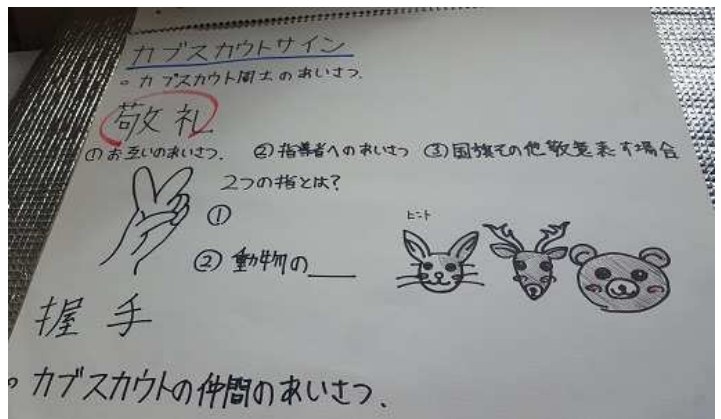 カブスカウトサイン
。カブスカウト同士のあいさつ.
敬礼
①お互いのあいさつ. ②指導者へのあいさつ ③国旗その他敬意表す場合
2つの指とは?
①
ヒント
②動物の___
握手
。カブスカウトの仲間のあいさつ.